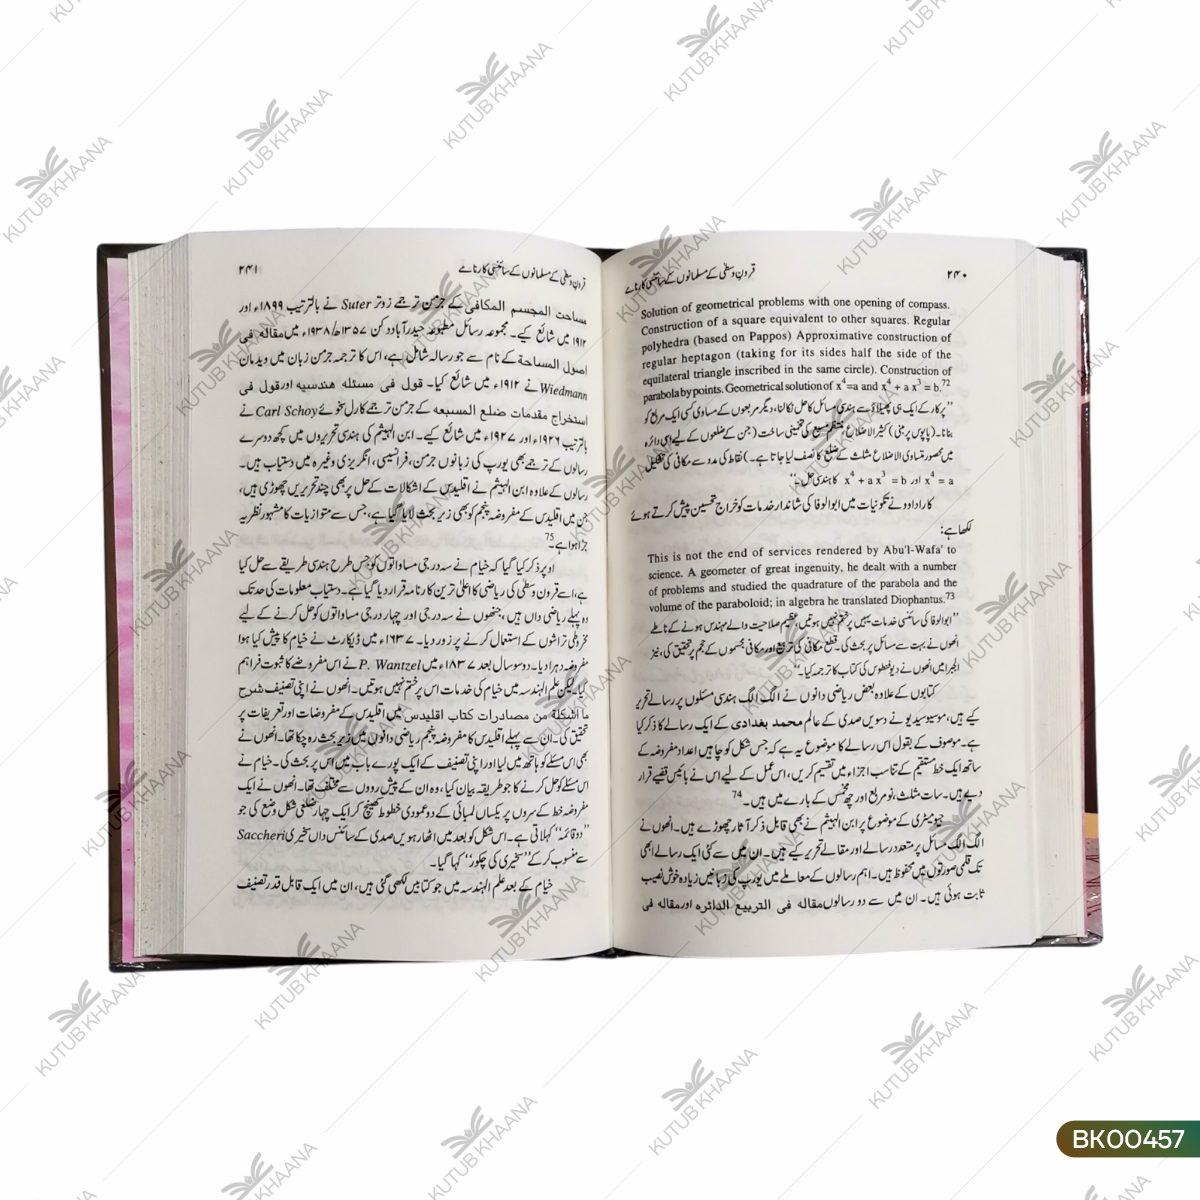 ۲۴۰
قرونِ وسطٰی کے مسلمانوں کے سائنسی کارنامے
Solution of geometrical problems with one opening of compass.
Construction of a square equivalent to other squares. Regular
polyhedra (based on Pappos) Approximative construction of
regular heptagon (taking for its sides half the side of the
equilateral triangle inscribed in the same circle). Construction of
parabola by points. Geometrical solution of x⁴=a and x⁴ + a x³ = b.72
"پرکار کے ایک ہی پھیلاؤ سے ہندسی مسائل کا حل نکالنا، دیگر مربعوں کے مساوی کسی ایک مربع کو
بنانا۔ (پاپوس پر مبنی) کثیر الاضلاع منتظم مسبع کی تخمینی ساخت (جن کے ضلعوں کے لیے اسی دائرہ
میں محصور متساوی الاضلاع مثلث کے ضلع کا نصف لیا جاتا ہے۔) نقاط کی مدد سے مکافی کی تشکیل
x⁴ = a اور x⁴ + a x³ = b کا ہندسی حل۔"
کارادا وو نے تکونیات میں ابوالوفا کی شاندار خدمات کو خراج تحسین پیش کرتے ہوئے
لکھا ہے:
This is not the end of services rendered by Abu'l-Wafa' to
science. A geometer of great ingenuity, he dealt with a number
of problems and studied the quadrature of the parabola and the
volume of the paraboloid; in algebra he translated Diophantus.73
"ابوالوفا کی سائنسی خدمات یہیں پر ختم نہیں ہوتیں، عظیم صلاحیت والے مہندس ہونے کے ناطے
انھوں نے بہت سے مسائل پر بحث کی۔ قطع مکافی کی تربیع اور مکافی مجسموں کے حجم پر تحقیق کی، نیز
الجبرا میں انھوں نے دیوفنطوس کی کتاب کا ترجمہ کیا۔"
کتابوں کے علاوہ بعض ریاضی دانوں نے الگ الگ ہندسی مسئلوں پر رسالے تحریر
کیے ہیں، موسیو سیدیو نے دسویں صدی کے عالم محمد بغدادی کے ایک رسالے کا ذکر کیا
ہے۔ موصوف کے بقول اس رسالے کا موضوع یہ ہے کہ جس شکل کو چاہیں اعداد مفروضہ کے
ساتھ ایک خط مستقیم کے تناسب اجزاء میں تقسیم کریں، اس عمل کے لیے اس نے بائیس قضیے قرار
دیے ہیں۔ سات مثلث، نو مربع اور چھ مخمس کے بارے میں ہیں۔74
جیومیٹری کے موضوع پر ابن الہیثم نے بھی قابل ذکر آثار چھوڑے ہیں۔ انھوں نے
الگ الگ مسائل پر متعدد رسالے اور مقالے تحریر کیے ہیں۔ ان میں سے کئی ایک رسالے ابھی
تک قلمی صورتوں میں محفوظ ہیں۔ اہم رسالوں کے معاملے میں یورپ کی زبانیں زیادہ خوش نصیب
ثابت ہوئی ہیں۔ ان میں سے دو رسالوں مقالہ فی التربیع الدائرہ اور مقالہ فی
۲۴۱
قرونِ وسطٰی کے مسلمانوں کے سائنسی کارنامے
مساحت المجسم المکافی کے جرمن ترجمے زوتر Suter نے بالترتیب ۱۸۹۹ء اور
۱۹۱۲ میں شائع کیے۔ مجموعہ رسائل مطبوعہ حیدرآباد دکن ۱۳۵۷ھ/۱۹۳۸ء میں مقالہ فی
اصول المساحۃ کے نام سے جو رسالہ شامل ہے، اس کا ترجمہ جرمن زبان میں ویدمان
Wiedmann نے ۱۹۱۲ء میں شائع کیا۔ قول فی مسئلہ ھندسیہ اور قول فی
استخراج مقدمات ضلع المسبعہ کے جرمن ترجمے کارل سخوئے Carl Schoy نے
بالترتیب ۱۹۲۶ء اور ۱۹۲۷ء میں شائع کیے۔ ابن الہیثم کی ہندسی تحریروں میں کچھ دوسرے
رسالوں کے ترجمے بھی یورپ کی زبانوں جرمن، فرانسیسی، انگریزی وغیرہ میں دستیاب ہیں۔
رسالوں کے علاوہ ابن الہیثم نے اقلیدس کے اشکالات کے حل پر بھی چند تحریریں چھوڑی ہیں،
جن میں اقلیدس کے مفروضہ پنجم کو بھی زیر بحث لایا گیا ہے، جس سے متوازیات کا مشہور نظریہ
جڑا ہوا ہے۔75
اوپر ذکر کیا گیا کہ خیام نے سہ درجی مساواتوں کو جس طرح ہندسی طریقے سے حل کیا
ہے، اسے قرون وسطٰی کی ریاضی کا اعلیٰ ترین کارنامہ قرار دیا گیا ہے۔ دستیاب معلومات کی حد تک
وہ پہلے ریاضی داں ہیں، جنھوں نے سہ درجی اور چہار درجی مساواتوں کو حل کرنے کے لیے
مخروطی تراشوں کے استعمال کرنے پر زور دیا۔ ۱۶۳۷ء میں ڈیکارٹ نے خیام کا پیش کیا ہوا
مفروضہ دہرا دیا۔ دو سو سال بعد ۱۸۳۷ء میں P. Wantzel نے اس مفروضے کا ثبوت فراہم
کیا۔ لیکن علم الہندسہ میں خیام کی خدمات اس پر ختم نہیں ہوتیں۔ انھوں نے اپنی تصنیف شرح
ما أشکلہ من مصادرات کتاب اقلیدس میں اقلیدس کے مفروضات اور تعریفات پر
تحقیق کی۔ ان سے پہلے اقلیدس کا مفروضہ پنجم ریاضی دانوں میں زیر بحث رہ چکا تھا۔ انھوں نے
بھی اس مسئلے کو ہاتھ میں لیا اور اپنی تصنیف کے ایک پورے باب میں اس پر بحث کی۔ خیام نے
اس مسئلے کو حل کرنے کا جو طریقہ بیان کیا، وہ ان کے پیش رووں سے مختلف تھا۔ انھوں نے ایک
مفروضہ خط کے سروں پر یکساں لمبائی کے دو عمودی خطوط کھینچ کر ایک چہار ضلعی شکل وضع کی جو
"دو قائمہ" کہلاتی ہے۔ اس شکل کو بعد میں اٹھارہویں صدی کے سائنس داں سخیری Saccheri
سے منسوب کرکے "سخیری کی چکور" کہا گیا۔
خیام کے بعد علم الہندسہ میں جو کتابیں لکھی گئی ہیں، ان میں ایک قابل قدر تصنیف
KUTUB KHAANA
BK00457